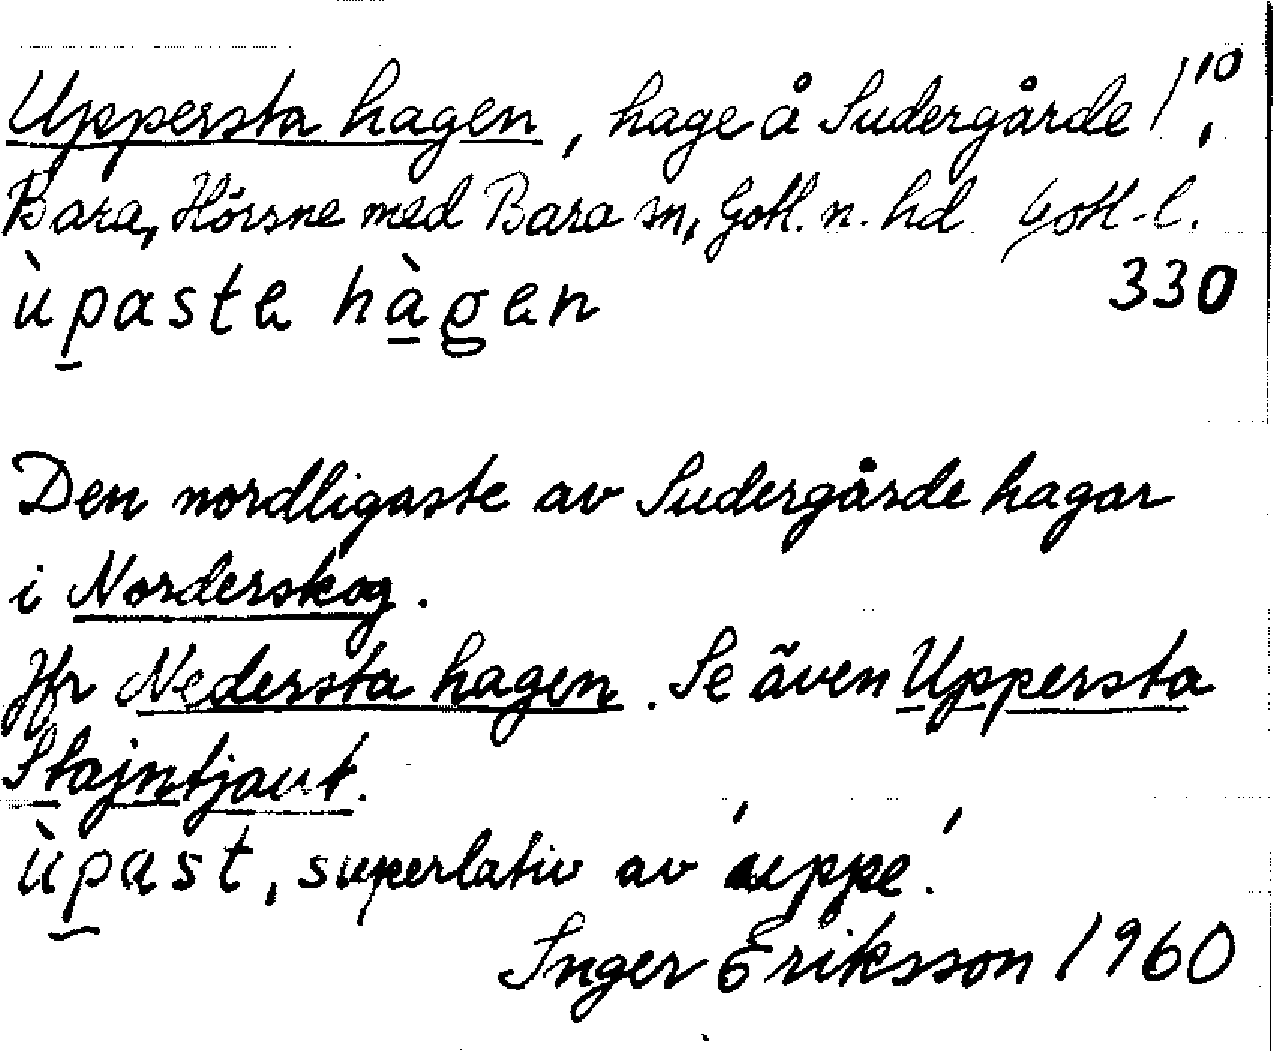 Uppersta hagen, hage å Sudergårde 1¹⁰,
Bara, Hörsne med Bara sn, Gotl. n. hd Gotl. l.
ùpaste hàgen 330
Den nordligaste av Sudergårde hagar
i Norderskog.
Jfr Nedersta hagen. Se även Uppersta
Stajntjaut.
ùpast, superlativ av 'uppe'.
Inger Eriksson 1960